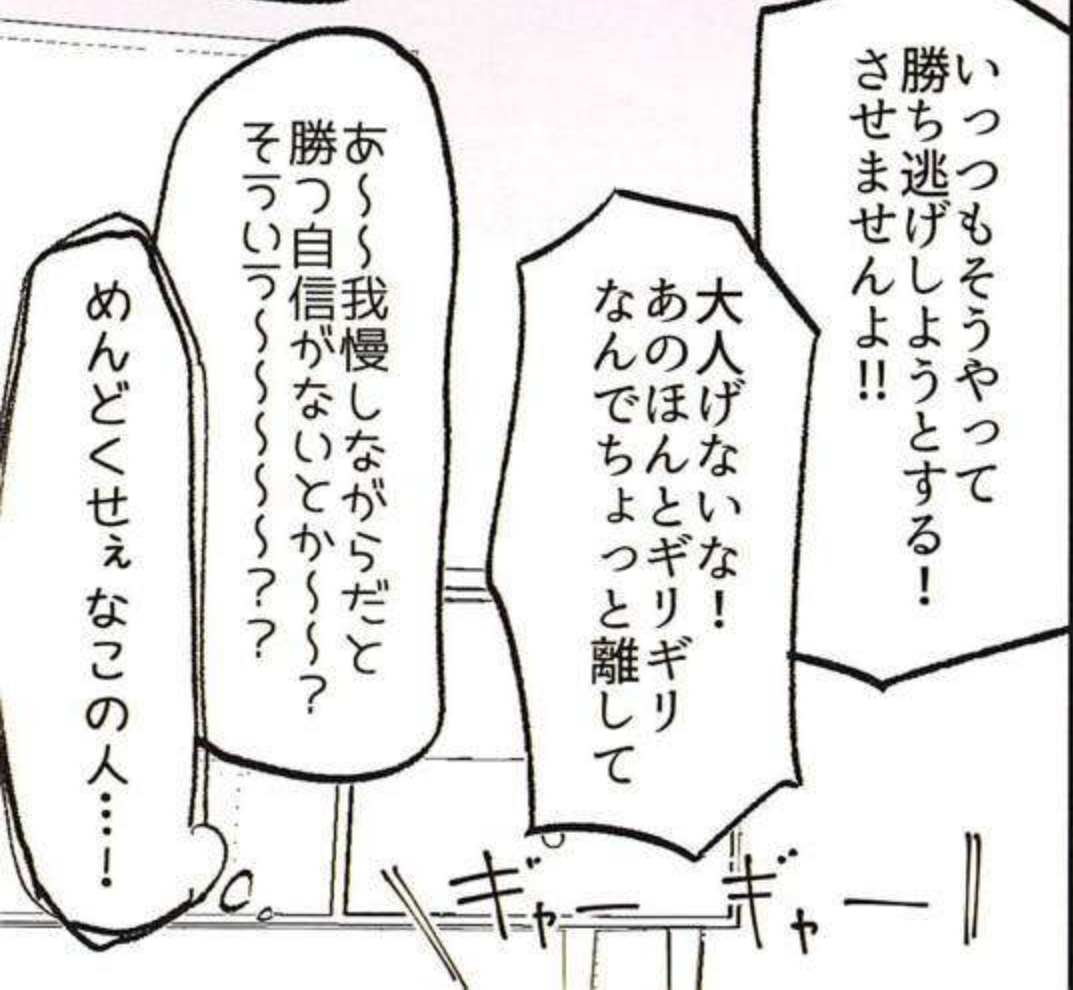 いっつもそうやって
勝ち逃げしようとする！
させませんよ!!
大人げないな！
あのほんとギリギリ
なんでちょっと離して
あ〜〜我慢しながらだと
勝つ自信がないとか〜〜？
そういう〜〜〜〜〜？？
めんどくせぇなこの人…！
ギャー
ギャー